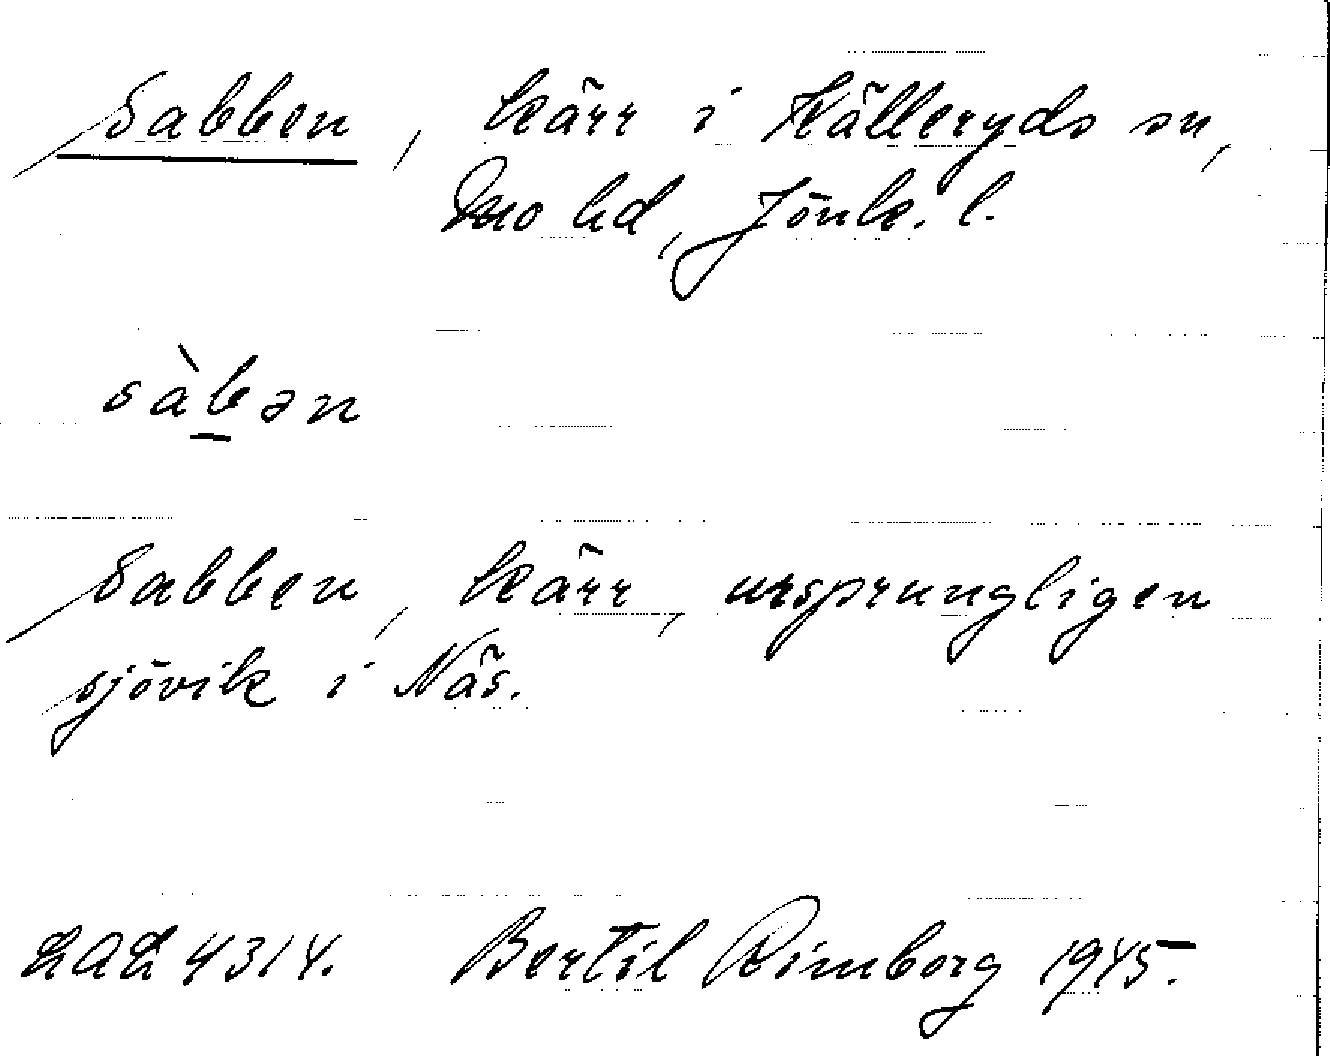 Sabben, kärr i Källeryds sn,
Mo hd, Jönk. l.
sàb̲ən
Sabben, kärr, ursprungligen
sjövik i Näs.
LAL 4314. Bertil Rimborg 1945.